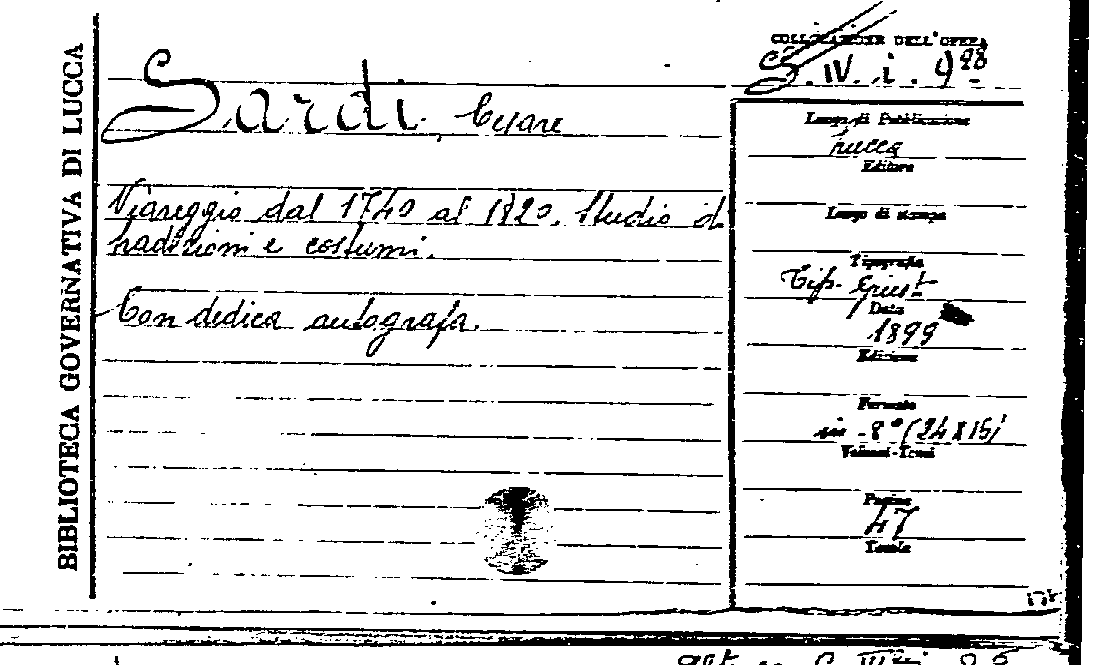 BIBLIOTECA GOVERNATIVA DI LUCCA
COLLOCAZIONE DELL'OPERA
S. IV. i. 998
Sardi, Cesare
Viareggio dal 1740 al 1820. Studio di
tradizioni e costumi.
Con dedica autografa.
Luogo di Pubblicazione
Lucca
Editore
Luogo di stampa
Tipografia
Tip. Giusti
Data
1899
Edizione
Formato
in -8° (24X15)
Volumi-Tomi
Pagine
47
Tavole